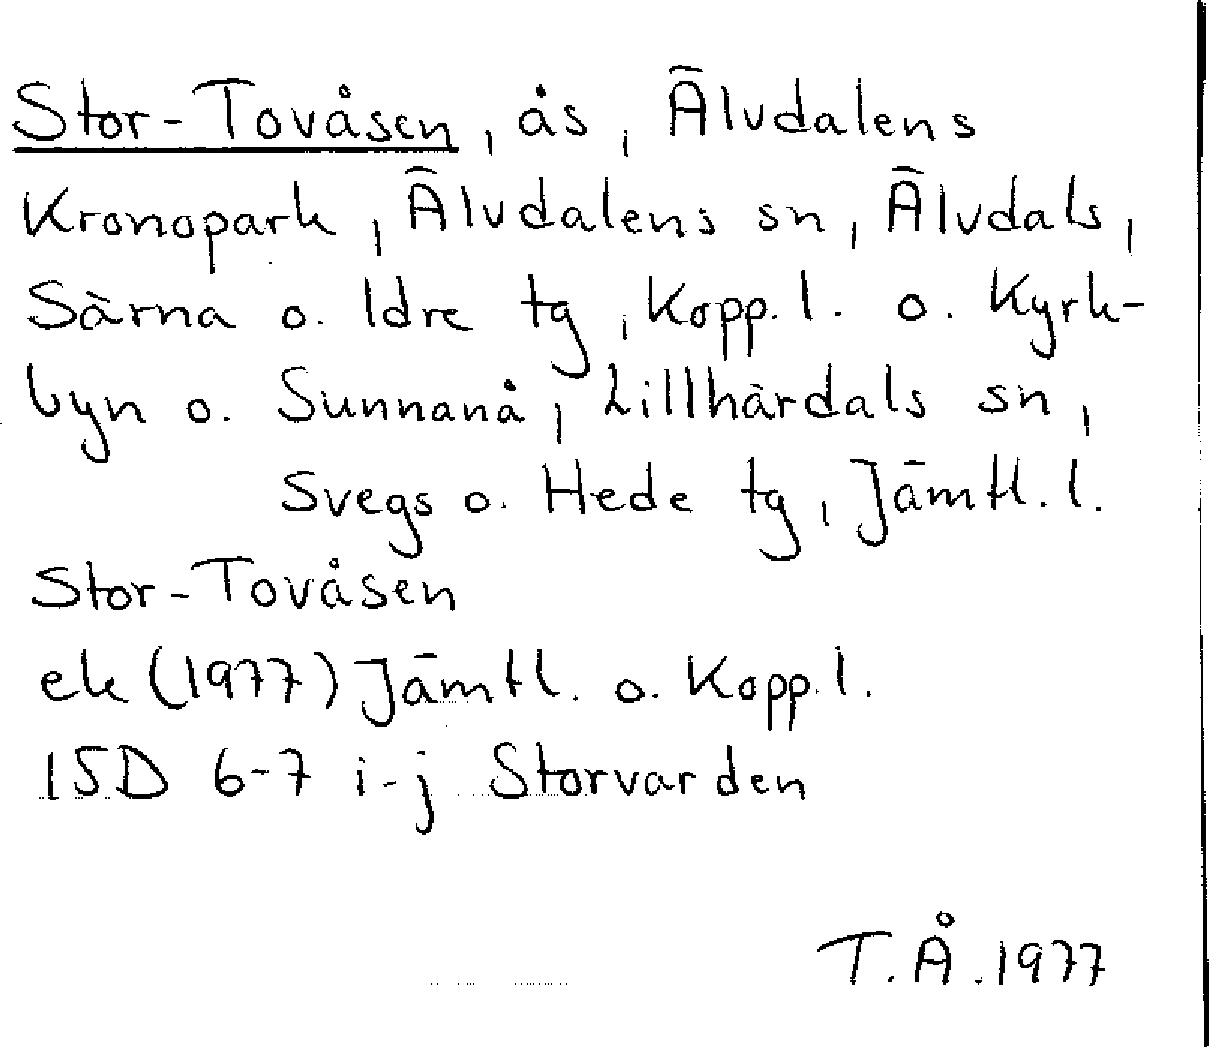 Stor-Tovåsen, ås, Älvdalens
Kronopark, Älvdalens sn, Älvdals,
Särna o. Idre tg, Kopp. l. o. Kyrk-
byn o. Sunnanå, Lillhärdals sn,
Svegs o. Hede tg, Jämtl. l.
Stor-Tovåsen
ek (1977) Jämtl. o. Kopp. l.
15D 6-7 i-j Storvarden
T.Å. 1977